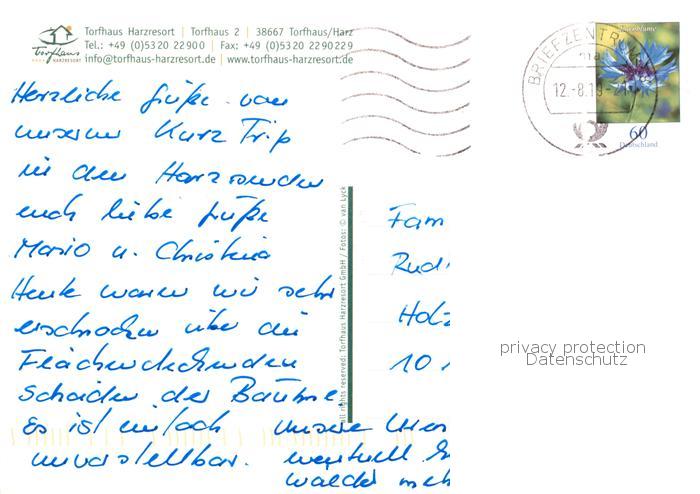 Torfhaus Harzresort | Torfhaus 2 | 38667 Torfhaus/Harz
Tel.: +49 (0)5320 22900 | Fax: +49 (0)5320 2290229
info@torfhaus-harzresort.de | www.torfhaus-harzresort.de
Torfhaus
HARZRESORT
Herzliche Grüße von
unserem Kurz Trip
in den Harz senden
euch liebe Grüße
Mario u. Christina
Heute waren wir sehr
erschrocken über die
Flächendeckenden
Schäden der Bäume.
Es ist einfach
unvorstellbar.
unsere
eventuell
wälder
All rights reserved: Torfhaus Harzresort GmbH / Fotos: © van Lyck
BRIEFZENTR
12.-8.19-21
60
Deutschland
Fam
Rudi
Holz
10
privacy protection
Datenschutz